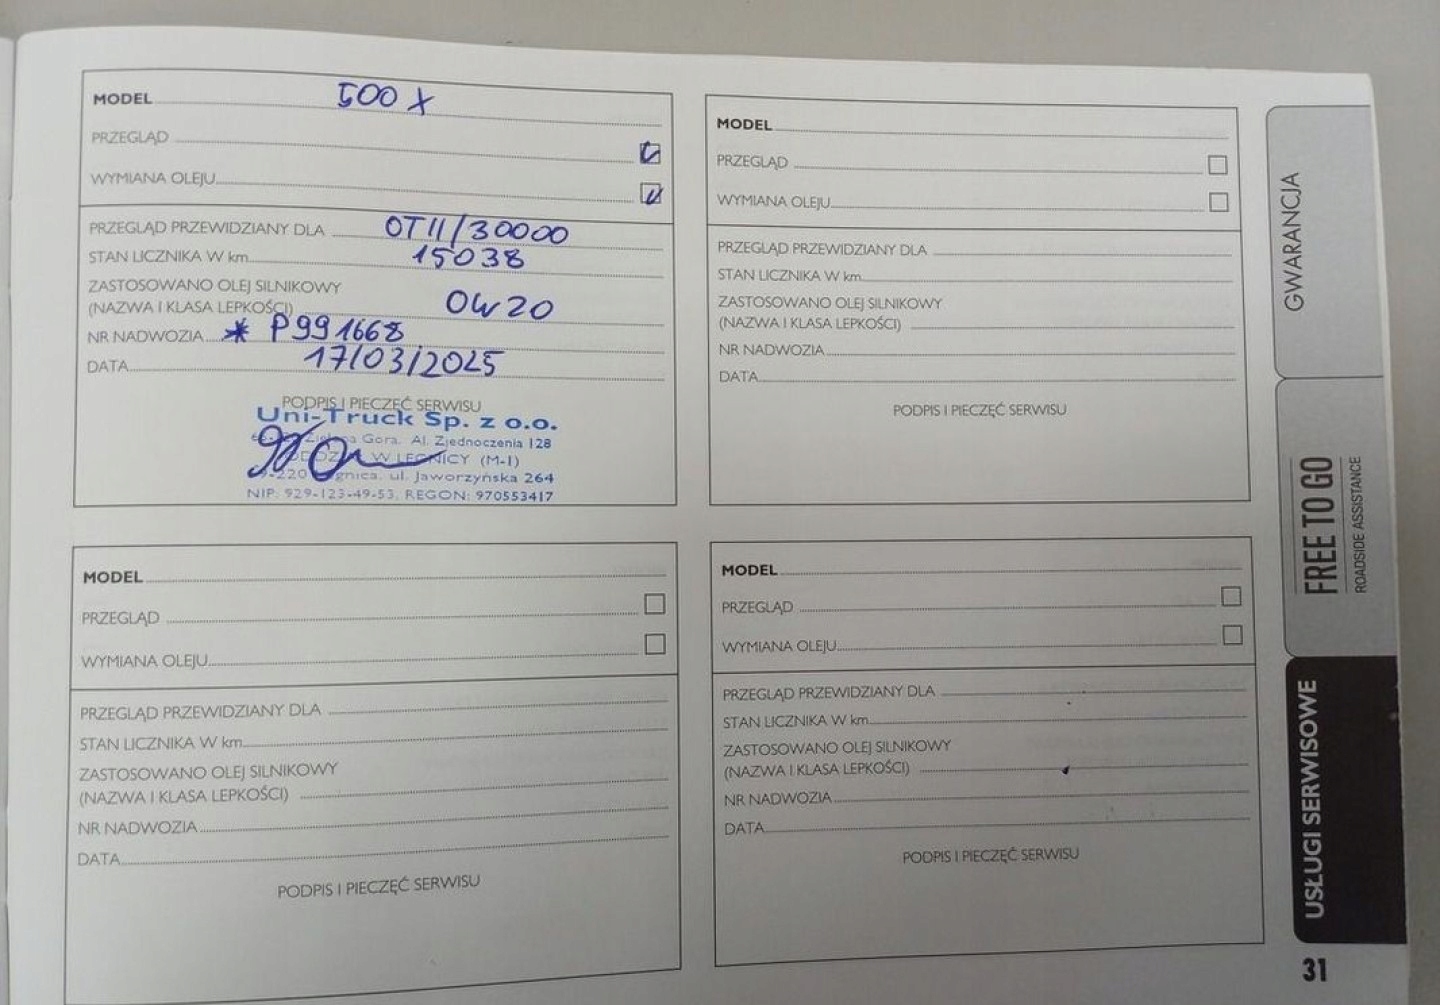 MODEL 500 X
PRZEGLĄD
WYMIANA OLEJU
PRZEGLĄD PRZEWIDZIANY DLA OTII/30000
STAN LICZNIKA W km 15038
ZASTOSOWANO OLEJ SILNIKOWY
(NAZWA I KLASA LEPKOŚCI) 0W20
NR NADWOZIA * P991668
DATA 17/03/2025
PODPIS I PIECZĘĆ SERWISU
Uni-Truck Sp. z o.o.
Zielona Gora, Al. Zjednoczenia 128
W LEGNICY (M-1)
ul. Jaworzyńska 264
NIP: 929-123-49-53, REGON: 970553417
MODEL
PRZEGLĄD
WYMIANA OLEJU
PRZEGLĄD PRZEWIDZIANY DLA
STAN LICZNIKA W km
ZASTOSOWANO OLEJ SILNIKOWY
(NAZWA I KLASA LEPKOŚCI)
NR NADWOZIA
DATA
PODPIS I PIECZĘĆ SERWISU
MODEL
PRZEGLĄD
WYMIANA OLEJU
PRZEGLĄD PRZEWIDZIANY DLA
STAN LICZNIKA W km
ZASTOSOWANO OLEJ SILNIKOWY
(NAZWA I KLASA LEPKOŚCI)
NR NADWOZIA
DATA
PODPIS I PIECZĘĆ SERWISU
MODEL
PRZEGLĄD
WYMIANA OLEJU
PRZEGLĄD PRZEWIDZIANY DLA
STAN LICZNIKA W km
ZASTOSOWANO OLEJ SILNIKOWY
(NAZWA I KLASA LEPKOŚCI)
NR NADWOZIA
DATA
PODPIS I PIECZĘĆ SERWISU
GWARANCJA
FREE TO GO
ROADSIDE ASSISTANCE
USŁUGI SERWISOWE
31